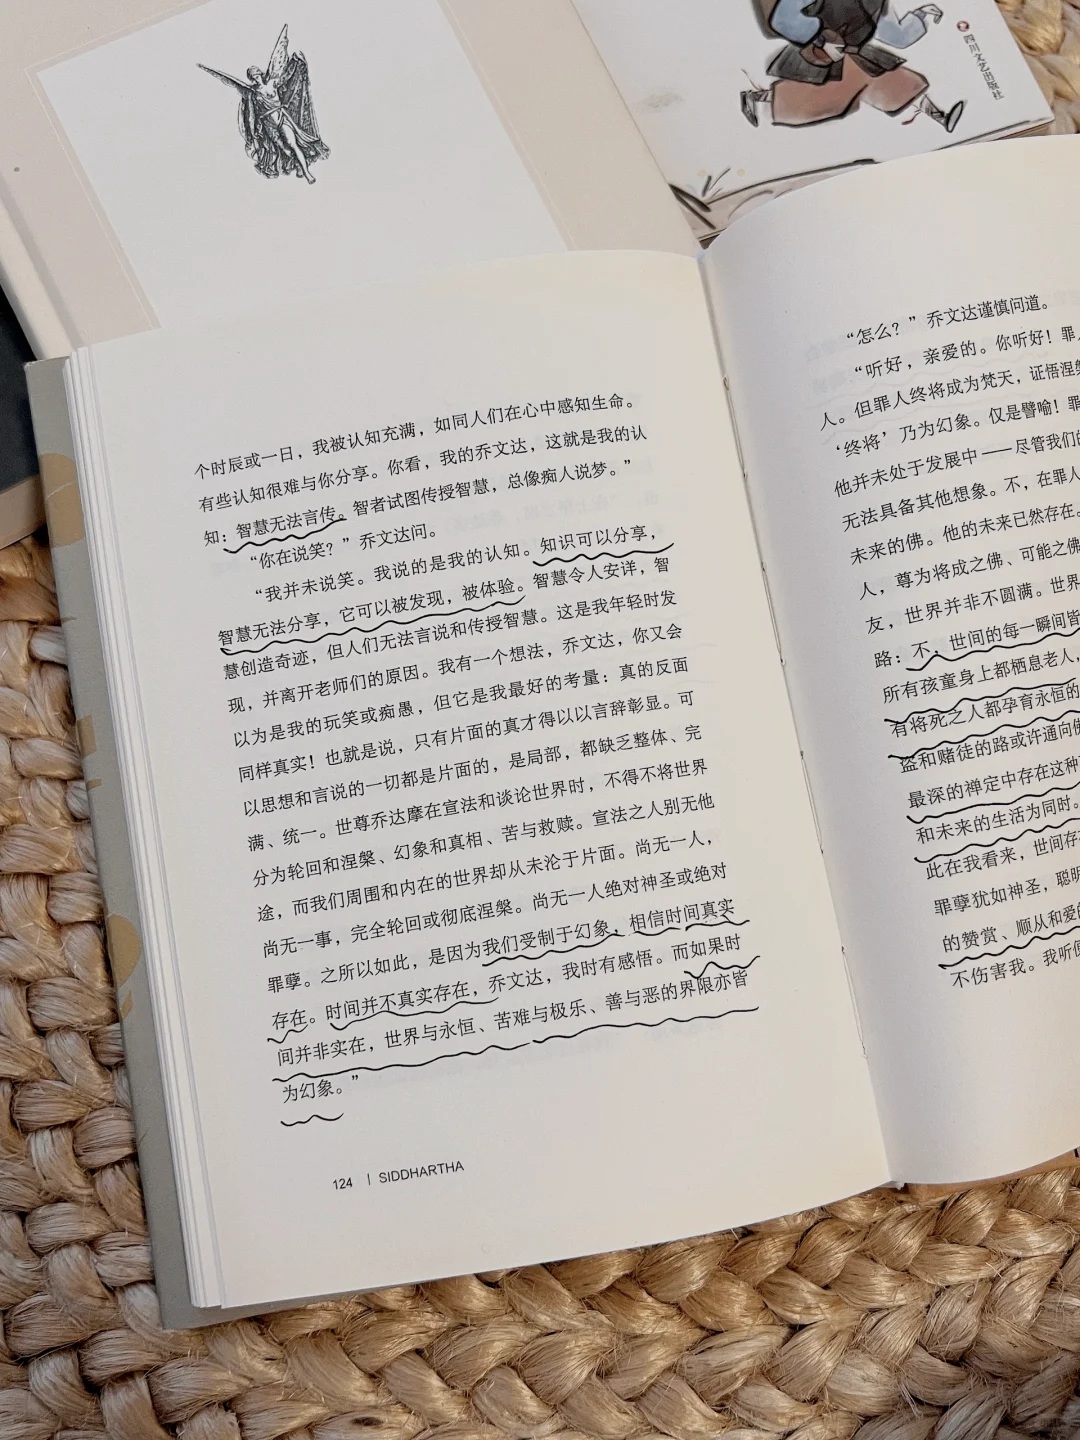 四川文艺出版社
个时辰或一日，我被认知充满，如同人们在心中感知生命。
有些认知很难与你分享。你看，我的乔文达，这就是我的认
知：智慧无法言传。智者试图传授智慧，总像痴人说梦。”
“你在说笑？”乔文达问。
“我并未说笑。我说的是我的认知。知识可以分享，
智慧无法分享，它可以被发现，被体验。智慧令人安详，智
慧创造奇迹，但人们无法言说和传授智慧。这是我年轻时发
现，并离开老师们的原因。我有一个想法，乔文达，你又会
以为是我的玩笑或痴愚，但它是我最好的考量：真的反面
同样真实！也就是说，只有片面的真才得以以言辞彰显。可
以思想和言说的一切都是片面的，是局部，都缺乏整体、完
满、统一。世尊乔达摩在宣法和谈论世界时，不得不将世界
分为轮回和涅槃、幻象和真相、苦与救赎。宣法之人别无他
途，而我们周围和内在的世界却从未沦于片面。尚无一人，
尚无一事，完全轮回或彻底涅槃。尚无一人绝对神圣或绝对
罪孽。之所以如此，是因为我们受制于幻象，相信时间真实
存在。时间并不真实存在，乔文达，我时有感悟。而如果时
间并非实在，世界与永恒、苦难与极乐、善与恶的界限亦皆
为幻象。”
124 | SIDDHARTHA
“怎么？”乔文达谨慎问道。
“听好，亲爱的。你听好！罪
人。但罪人终将成为梵天，证悟涅槃
‘终将’乃为幻象。仅是譬喻！罪
他并未处于发展中——尽管我们的
无法具备其他想象。不，在罪人
未来的佛。他的未来已然存在。
人，尊为将成之佛、可能之佛
友，世界并非不圆满。世界
路：不，世间的每一瞬间皆
所有孩童身上都栖息老人，
有将死之人都孕育永恒的
盗和赌徒的路或许通向佛
最深的禅定中存在这种
和未来的生活为同时。
此在我看来，世间存
罪孽犹如神圣，聪明
的赞赏、顺从和爱的
不伤害我。我听便